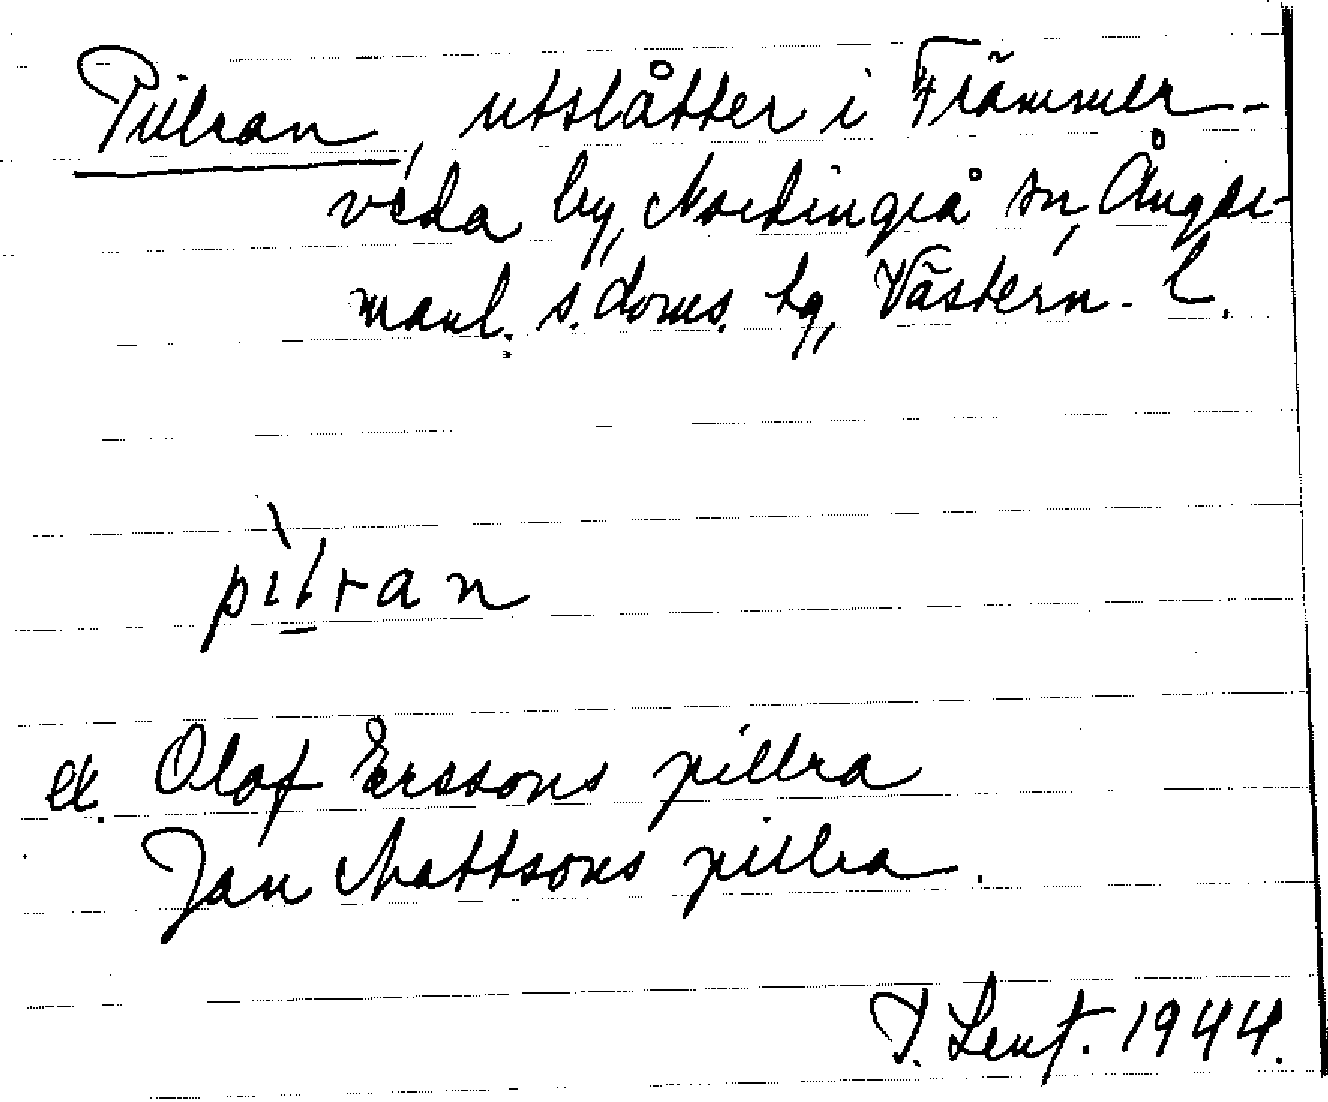 Pillran, utslåtter i Främmer-
veda by, Nordingrå sn, Ånger-
manl. s. doms. tg, Västern. l.
pìlran
ex. Olof Erssons pillra
Jan Mattsons pillra.
1944.